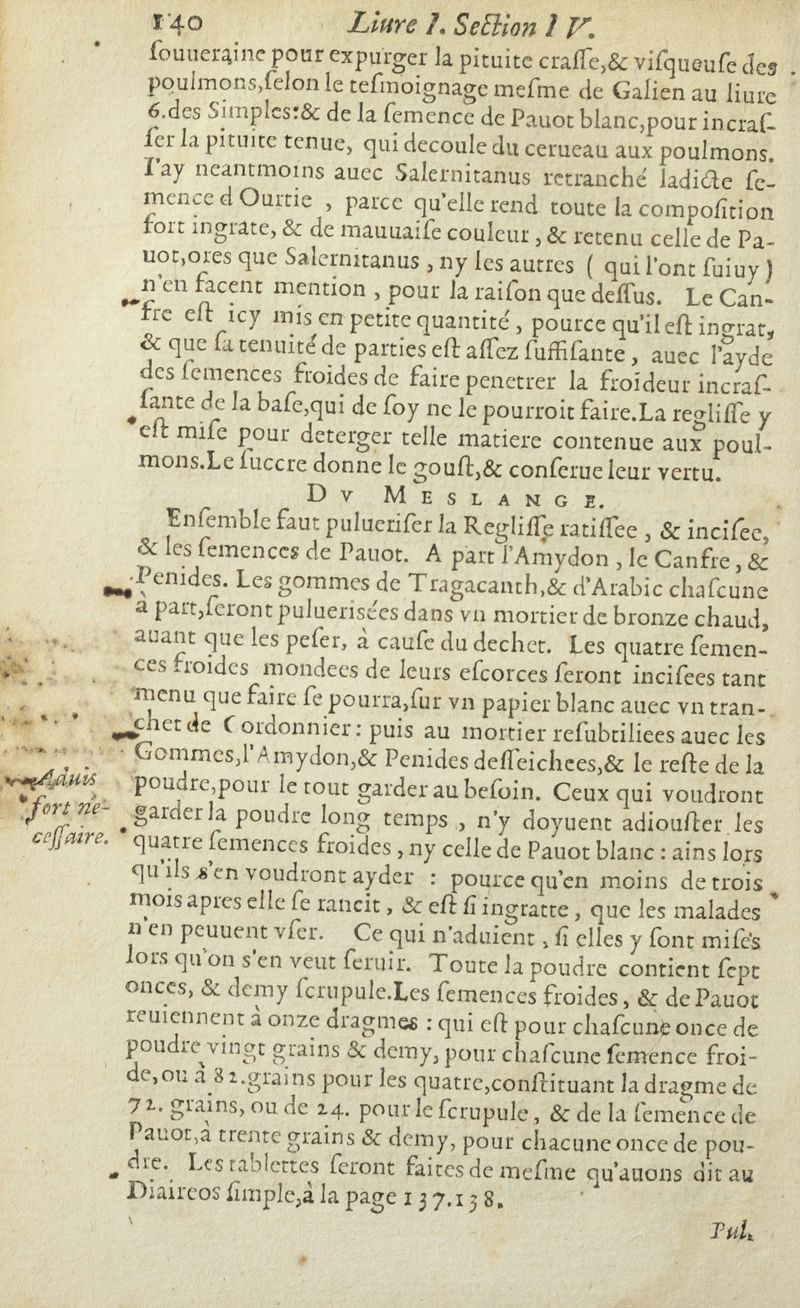 140 Liure I. Section I V.
ſouueraine pour expurger la pituite craſſe,& viſqueuſe des
poulmons,ſelon le teſmoignage meſme de Galien au liure
6.des Simples:& de la ſemence de Pauot blanc,pour incraſ-
ſer la pituite tenue, qui decoule du cerueau aux poulmons.
I'ay neantmoins auec Salernitanus retranché ladicte ſe-
mence d Ourtie , parce qu'elle rend toute la compoſition
fort ingrate, & de mauuaiſe couleur , & retenu celle de Pa-
uot,ores que Salernitanus , ny les autres ( qui l'ont ſuiuy )
n'en facent mention , pour la raiſon que deſſus. Le Can-
fre eſt icy mis en petite quantité , pource qu'il eſt ingrat,
& que ſa tenuité de parties eſt aſſez ſuffiſante , auec l'ayde
des ſemences froides de faire penetrer la froideur incraſ-
ſante de la baſe,qui de ſoy ne le pourroit faire.La regliſſe y
eſt miſe pour deterger telle matiere contenue aux poul-
mons.Le ſuccre donne le gouſt,& conſerue leur vertu.
D V M E S L A N G E.
Enſemble faut pulueriſer la Regliſſe ratiſſee , & inciſee,
& les ſemences de Pauot. A part l'Amydon , le Canfre , &
Penides. Les gommes de Tragacanth,& d'Arabic chaſcune
à part,ſeront pulueriſées dans vn mortier de bronze chaud,
auant que les peſer, à cauſe du dechet. Les quatre ſemen-
ces froides mondees de leurs eſcorces ſeront inciſees tant
menu que faire ſe pourra,ſur vn papier blanc auec vn tran-
chet de Cordonnier : puis au mortier reſubtiliees auec les
Gommes,l'Amydon,& Penides deſſeichees,& le reſte de la
poudre,pour le tout garder au beſoin. Ceux qui voudront
garder la poudre long temps , n'y doyuent adiouſter les
quatre ſemences froides , ny celle de Pauot blanc : ains lors
qu'ils s'en voudront ayder : pource qu'en moins de trois
mois apres elle ſe rancit , & eſt ſi ingratte , que les malades
n'en peuuent vſer. Ce qui n'aduient , ſi elles y ſont miſes
lors qu'on s'en veut ſeruir. Toute la poudre contient ſept
onces, & demy ſcrupule.Les ſemences froides , & de Pauot
reuiennent à onze dragmes : qui eſt pour chaſcune once de
poudre vingt grains & demy, pour chaſcune ſemence froi-
de,ou à 82.grains pour les quatre,conſtituant la dragme de
72. grains, ou de 24. pour le ſcrupule , & de la ſemence de
Pauot,à trente grains & demy, pour chacune once de pou-
dre. Les tablettes ſeront faites de meſme qu'auons dit au
Diaireos ſimple,à la page 137.138.
Aduis
fort ne-
ceſſaire.
Pul.